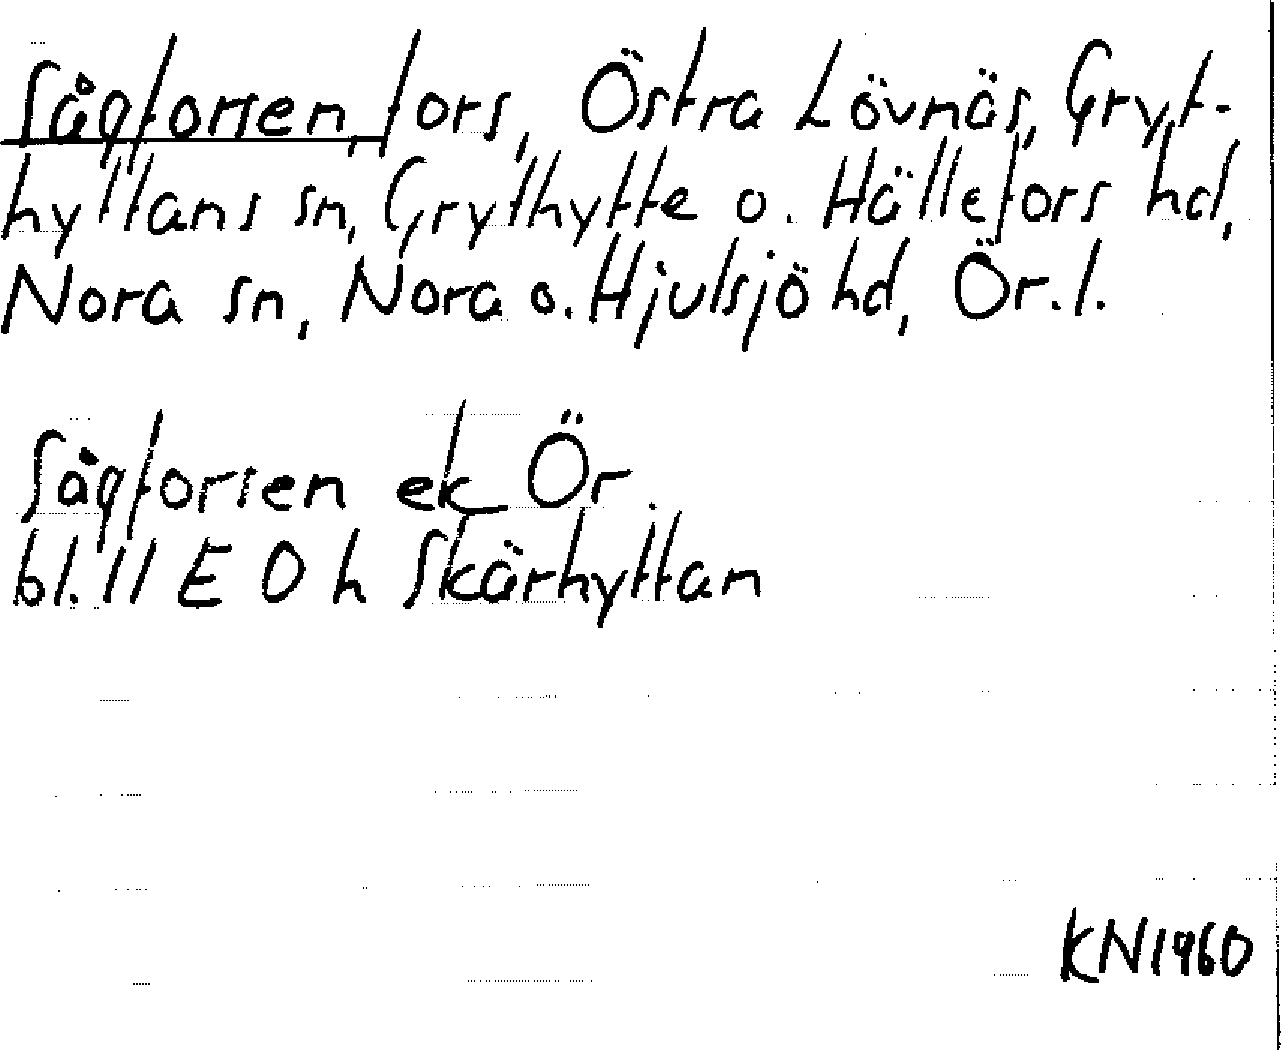 Sågforsen, fors, Östra Lövnäs, Gryt-
hyttans sn, Grythytte o. Hällefors hd,
Nora sn, Nora o. Hjulsjö hd, Ör. l.
Sågforsen ek Ör.
bl. 11 E 0 h Skärhyttan
KN1960